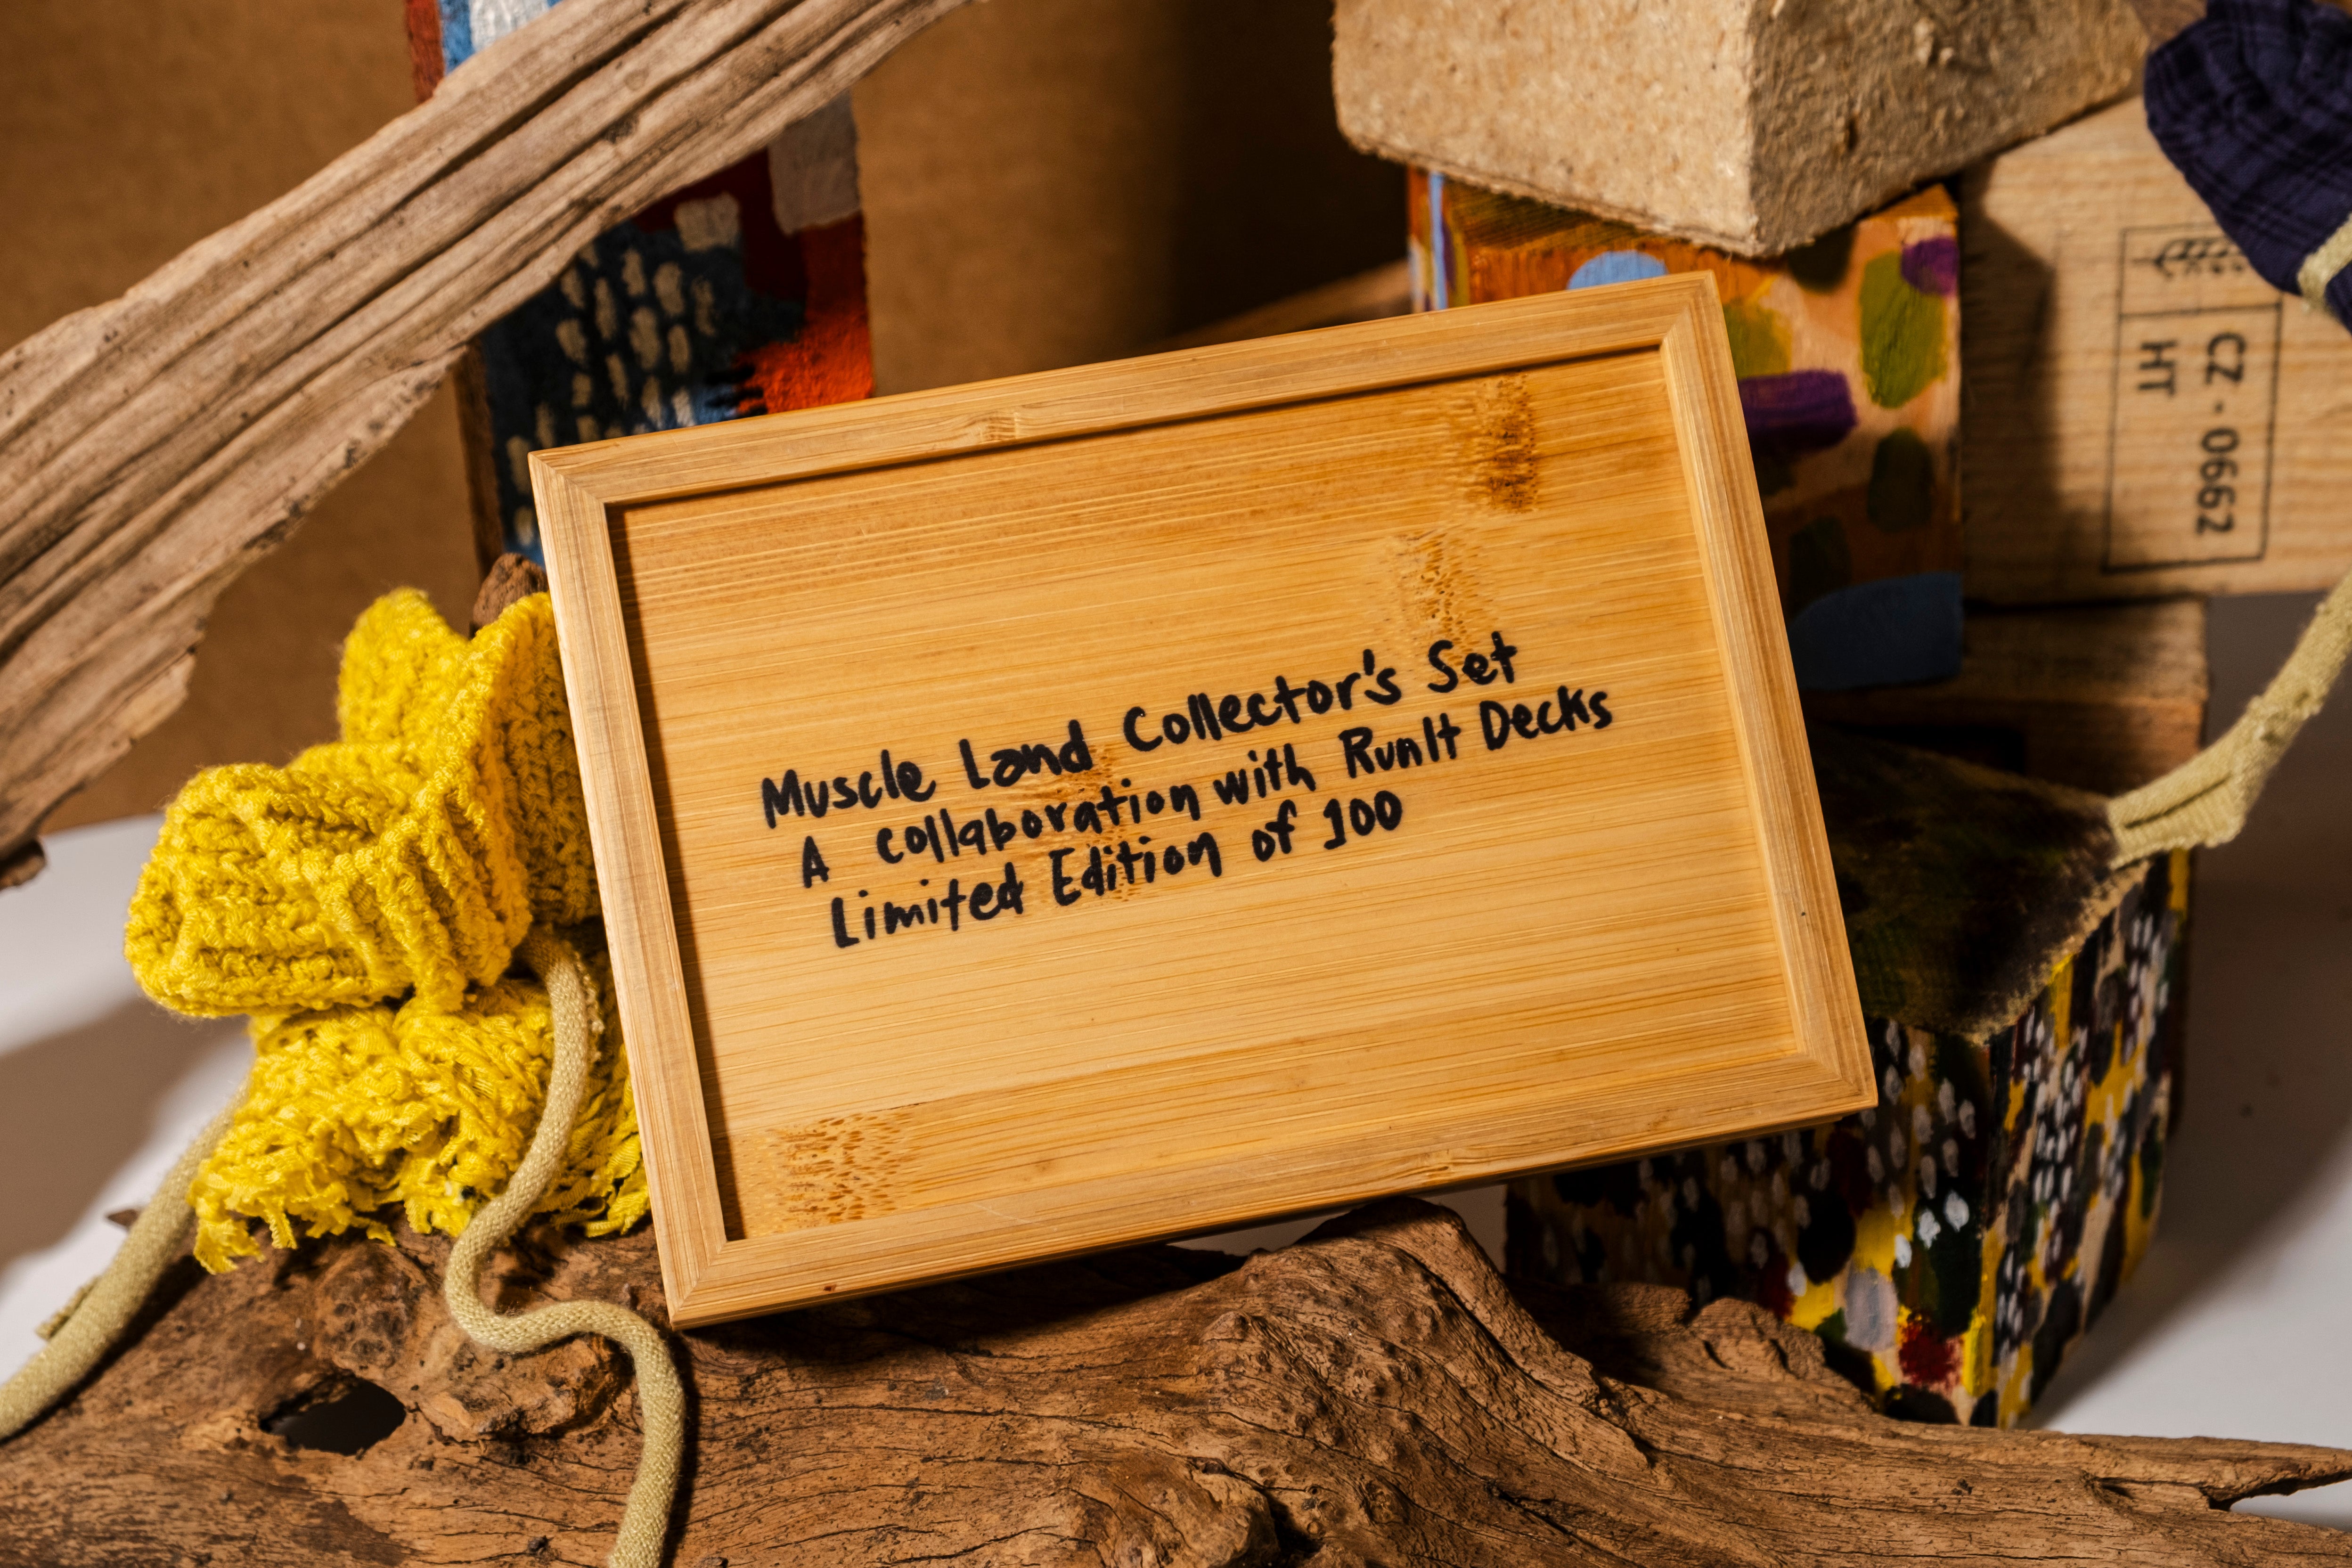 Muscle Land Collector's Set
A collaboration with RunIt Decks
Limited Edition of 100
CZ - 0662
HT